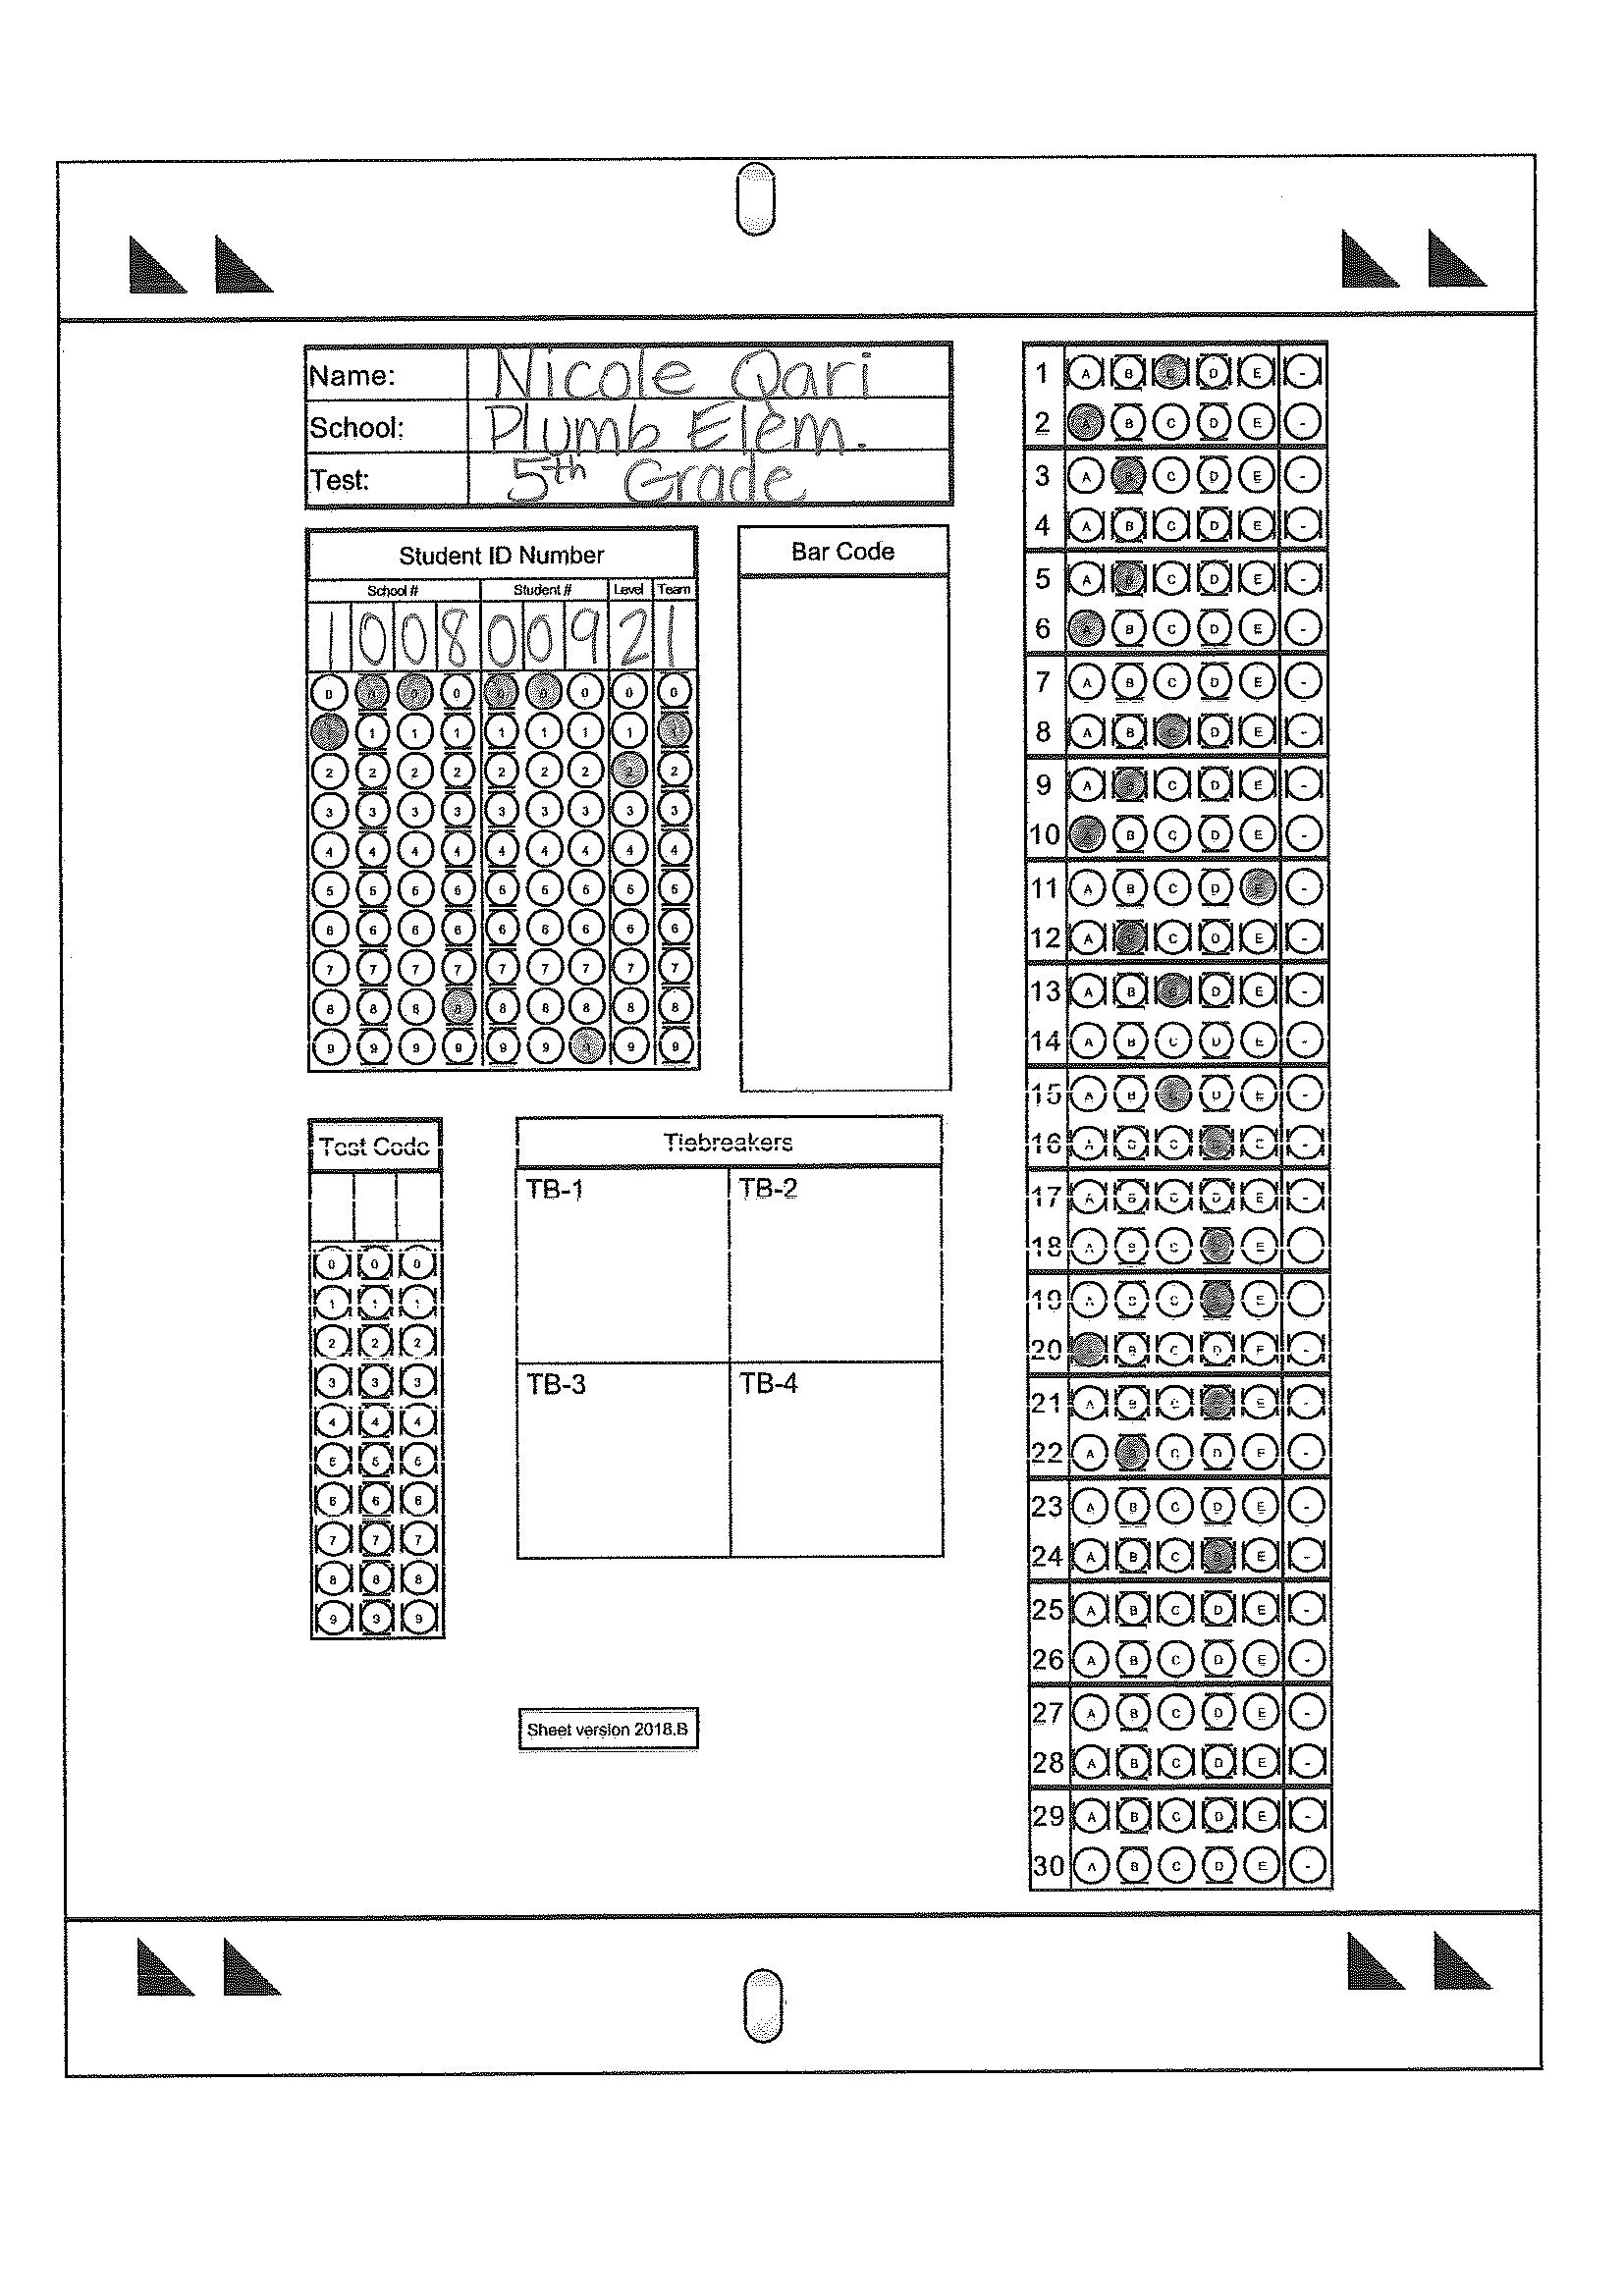 Name: Nicole Qari
School: Plumb Elem.
Test: 5th Grade
Student ID Number
School # Student # Level Team
1 0 0 8 0 0 9 2 1
0 0 0 0 0 0 0 0 0
1 1 1 1 1 1 1 1 1
2 2 2 2 2 2 2 2 2
3 3 3 3 3 3 3 3 3
4 4 4 4 4 4 4 4 4
5 5 5 5 5 5 5 5 5
6 6 6 6 6 6 6 6 6
7 7 7 7 7 7 7 7 7
8 8 8 8 8 8 8 8 8
9 9 9 9 9 9 9 9 9
Bar Code
Test Code
0 0 0
1 1 1
2 2 2
3 3 3
4 4 4
5 5 5
6 6 6
7 7 7
8 8 8
9 9 9
Tiebreakers
TB-1 TB-2
TB-3 TB-4
Sheet version 2018.B
1 A B C D E -
2 A B C D E -
3 A B C D E -
4 A B C D E -
5 A B C D E -
6 A B C D E -
7 A B C D E -
8 A B C D E -
9 A B C D E -
10 A B C D E -
11 A B C D E -
12 A B C D E -
13 A B C D E -
14 A B C D E -
15 A B C D E -
16 A B C D E -
17 A B C D E -
18 A B C D E
19 A B C D E
20 A B C D E -
21 A B C D E -
22 A B C D E -
23 A B C D E -
24 A B C D E -
25 A B C D E -
26 A B C D E -
27 A B C D E -
28 A B C D E -
29 A B C D E -
30 A B C D E -